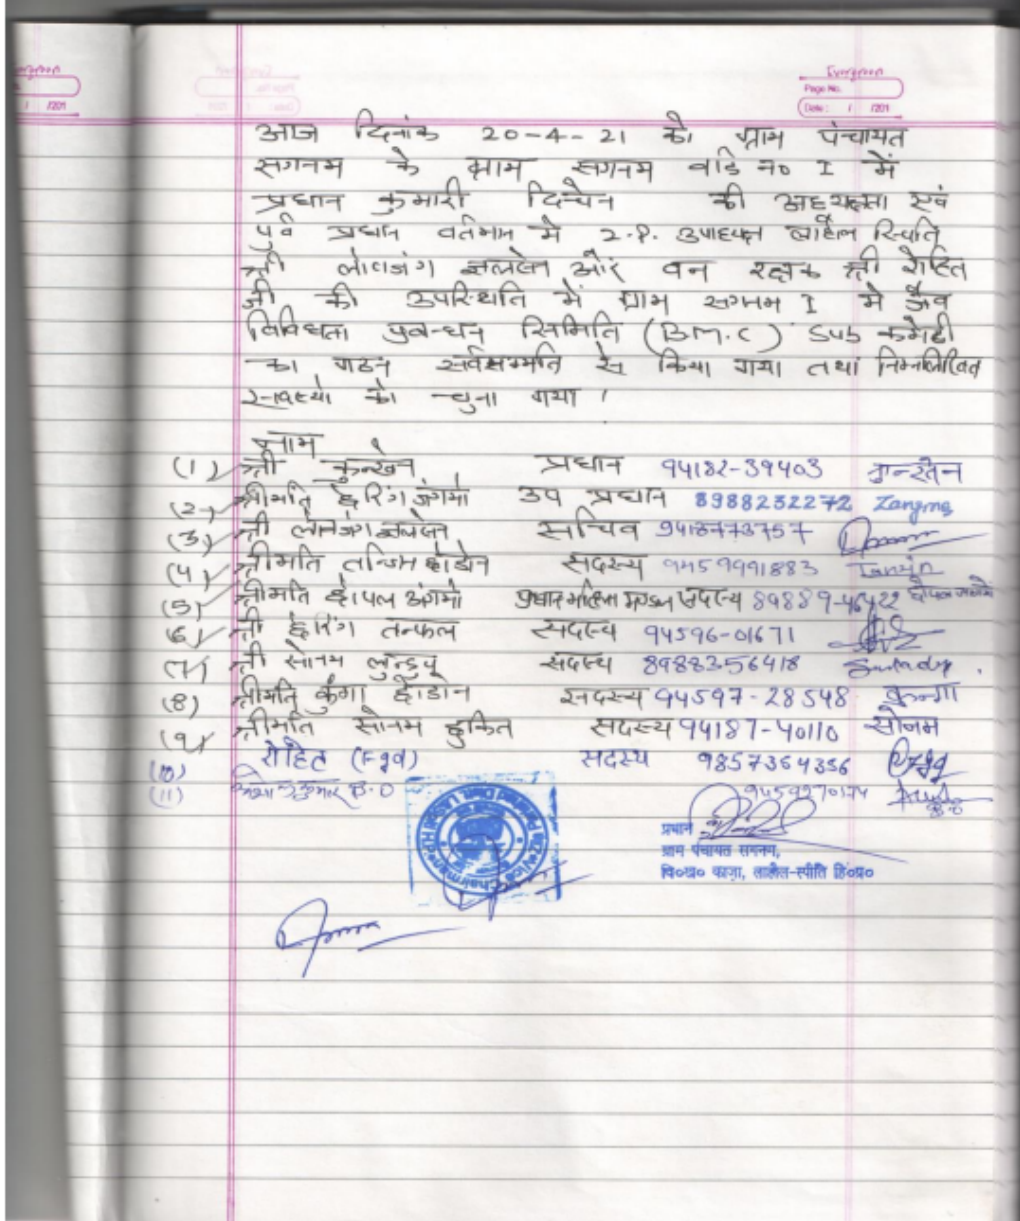 Evergreen
Page No.
Date: / /201
आज दिनांक 20-4-21 को ग्राम पंचायत
सगनम के ग्राम सगनम वार्ड न० I में
प्रधान कुमारी दिचेन की अध्यक्षता एवं
पुर्व प्रधान वर्तमान मे Z.P. उपाध्यक्ष लाहौल स्थिति
श्री लोवजंग और वन रक्षक श्री रोहित
जी की उपस्थिति में ग्राम सगनम I मे जैव
विविधता प्रवन्धन समिति (B.M.C) Sub कमेटी
का गठन सर्वसम्मति से किया गया तथा निम्नलिखित
सदस्यो को चुना गया ।
नाम
(1) श्री प्रधान 94182-39403
(2) श्रीमति छेरिंग जंगमो उप प्रधान 8988232272 Zangmo
(3) श्री सचिव 9418773757
(4) श्रीमति तन्जिन छोडोन सदस्य 9459991883 Tanzin
(5) श्रीमति अंगमो प्रधान महिला मण्डल सदस्य 89889-46422
(6) श्री छेरिंग तन्फल सदस्य 94596-01671
(7) श्री सोनम लुन्डुप सदस्य 8988356418
(8) श्रीमति कुंगा छोडोन सदस्य 94597-28548 कुन्गा
(9) श्रीमति सोनम छुकित सदस्य 94187-40110 सोनम
(10) रोहित (Fgd) सदस्य 9857364356
(11) B.O 9459270174
प्रधान
ग्राम पंचायत सगनम,
वि०ख० काज़ा, लाहौल-स्पीति हि०प्र०